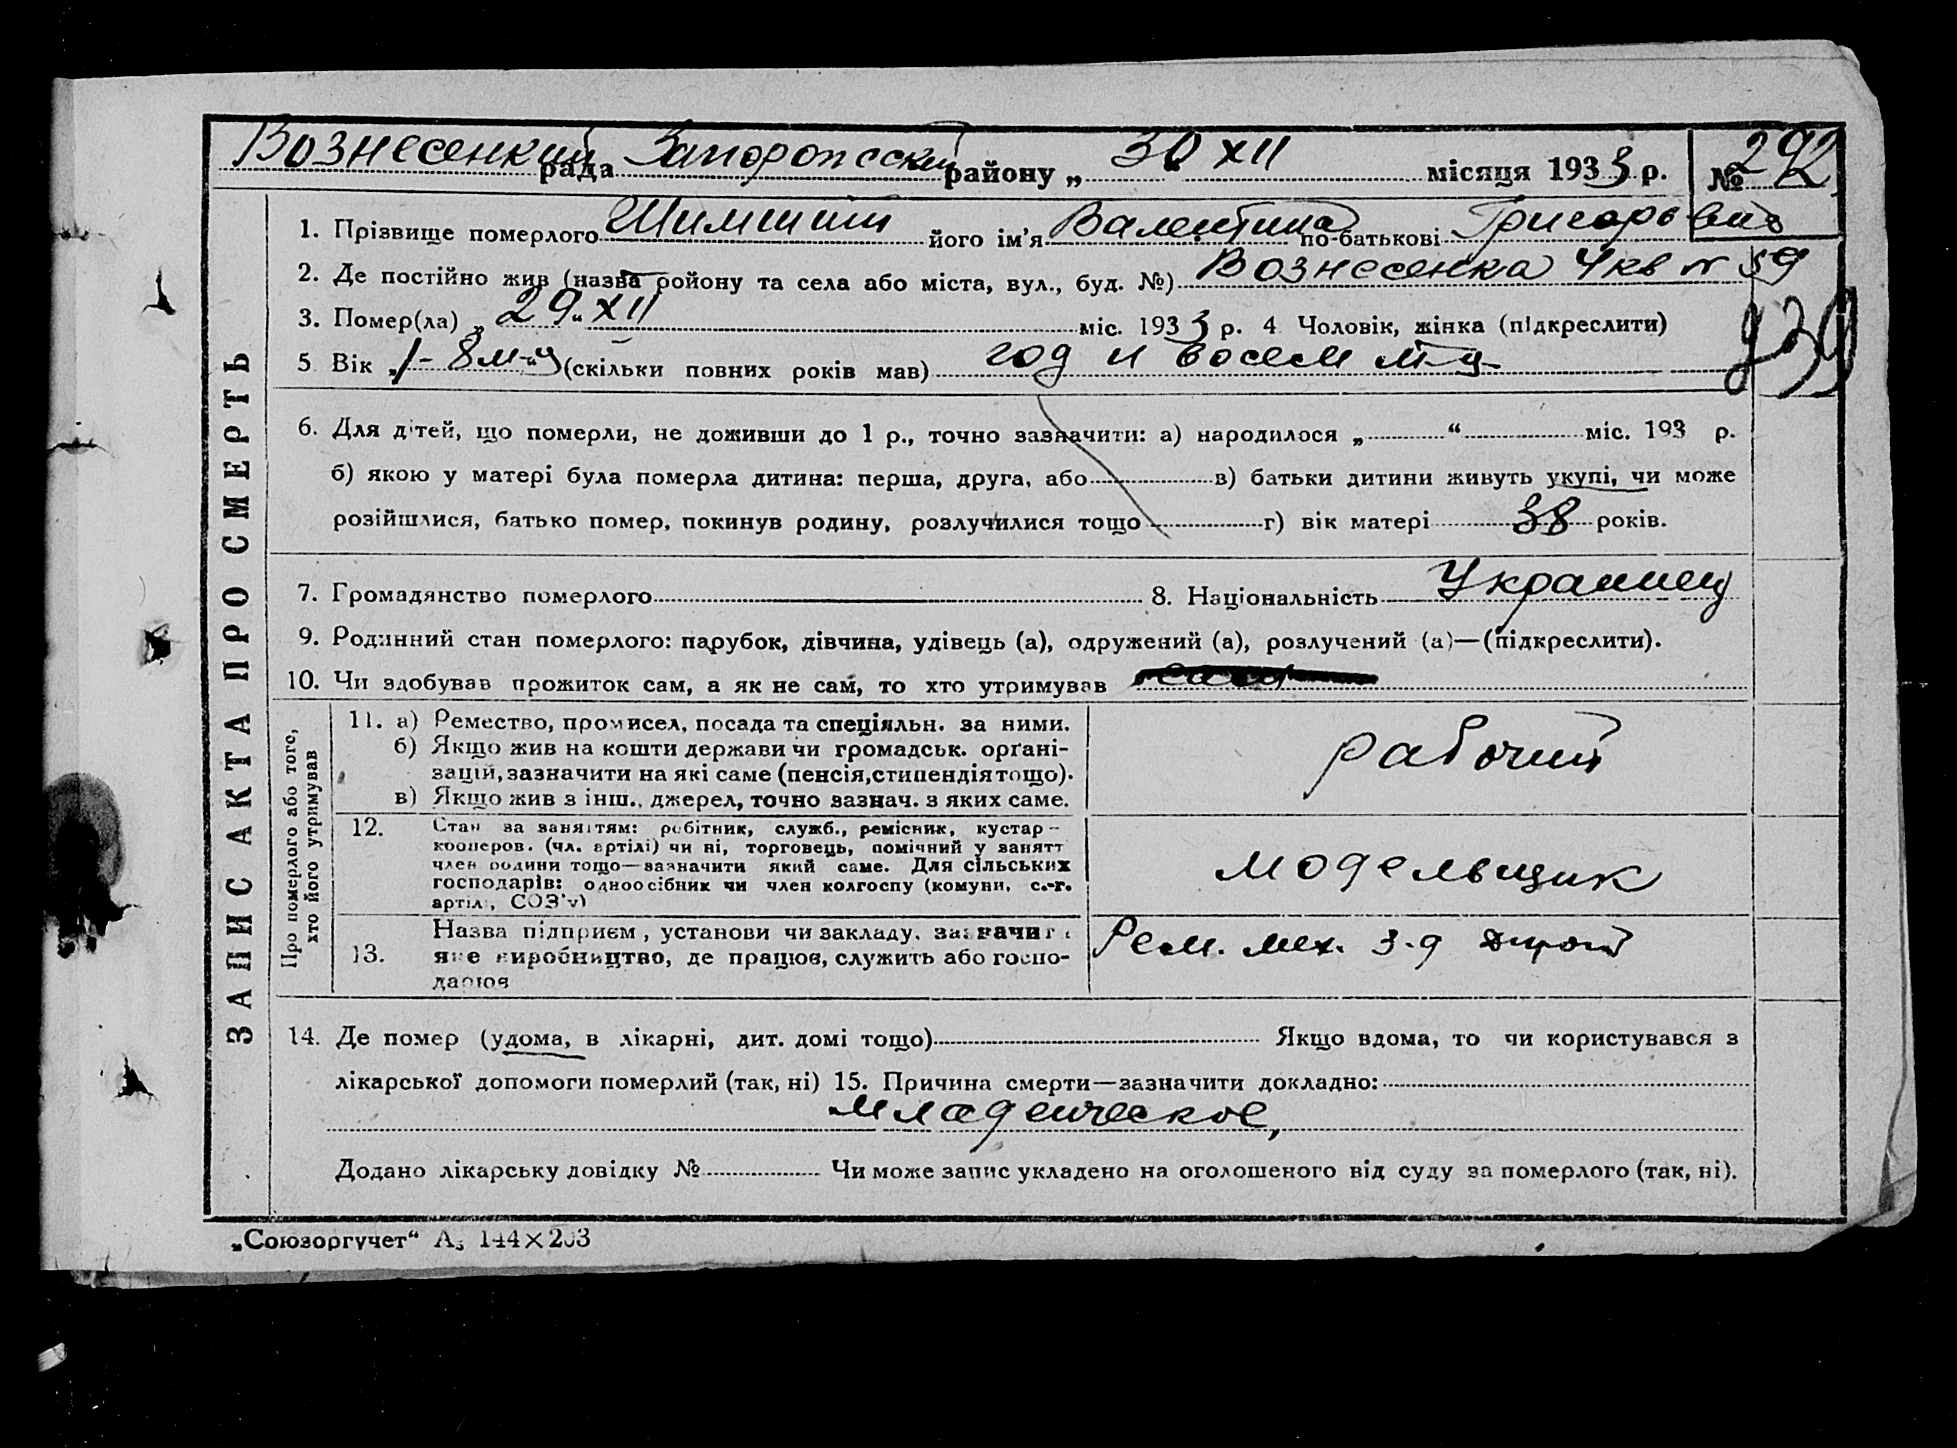 Вознесенкий рада Запорожский району „ 30 " XII місяця 1933 р. № 292
1. Прізвище померлого його ім'я Валентина по-батькові Григоровна
2. Де постійно жив (назва ройону та села або міста, вул., буд. №) Вознесенка 4 кв № 59
3. Помер(ла) „ 29 " XII міс. 1933 р. 4 Чоловік, жінка (підкреслити)
939
5 Вік 1-8 м-ц (скільки повних років мав) год и восем м-ц
6. Для дітей, що померли, не доживши до 1 р., точно зазначити: а) народилося „ “ міс. 193 р.
б) якою у матері була померла дитина: перша, друга, або в) батьки дитини живуть укупі, чи може
розійшлися, батько помер, покинув родину, розлучилися тощо г) вік матері 38 років.
7. Громадянство померлого 8. Національність Украинец
9. Родинний стан померлого: парубок, дівчина, удівець (а), одружений (а), розлучений (а)—(підкреслити).
10. Чи здобував прожиток сам, а як не сам, то хто утримував
ЗАПИС АКТА ПРО СМЕРТЬ
Про померлого або того, хто його утримував
11. а) Ремество, промисел, посада та спеціяльн. за ними.
б) Якщо жив на кошти держави чи громадськ. орґані-
зацій, зазначити на які саме (пенсія, стипендія тощо).
в) Якщо жив з інш., джерел, точно зазнач. з яких саме.
рабочий
12. Стан за заняттям: робітник, служб., ремісник, кустар-
кооперов. (чл. артілі) чи ні, торговець, помічний у занятт
член родини тощо—зазначити який саме. Для сільських
господарів: одноосібник чи член колгоспу (комуни, с.-г.
артілі, СОЗ'у)
модельщик
13. Назва підприєм, установи чи закладу, зазначити
яке виробництво, де працює, служить або госпо-
дарює
Рем. мех. з-д
14. Де помер (удома, в лікарні, дит. домі тощо) Якщо вдома, то чи користувався з
лікарської допомоги померлий (так, ні) 15. Причина смерти—зазначити докладно:
младенческое,
Додано лікарську довідку № Чи може запис укладено на оголошеного від суду за померлого (так, ні).
„Союзоргучет“ А₅ 144×203